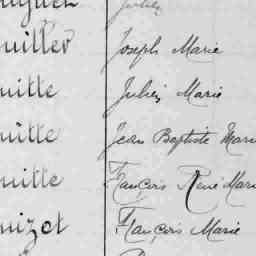 uiller Joseph Marie
uitte Julien Marie
uitte Jean Baptiste Marie
uitte François René Mari
uizot François Marie